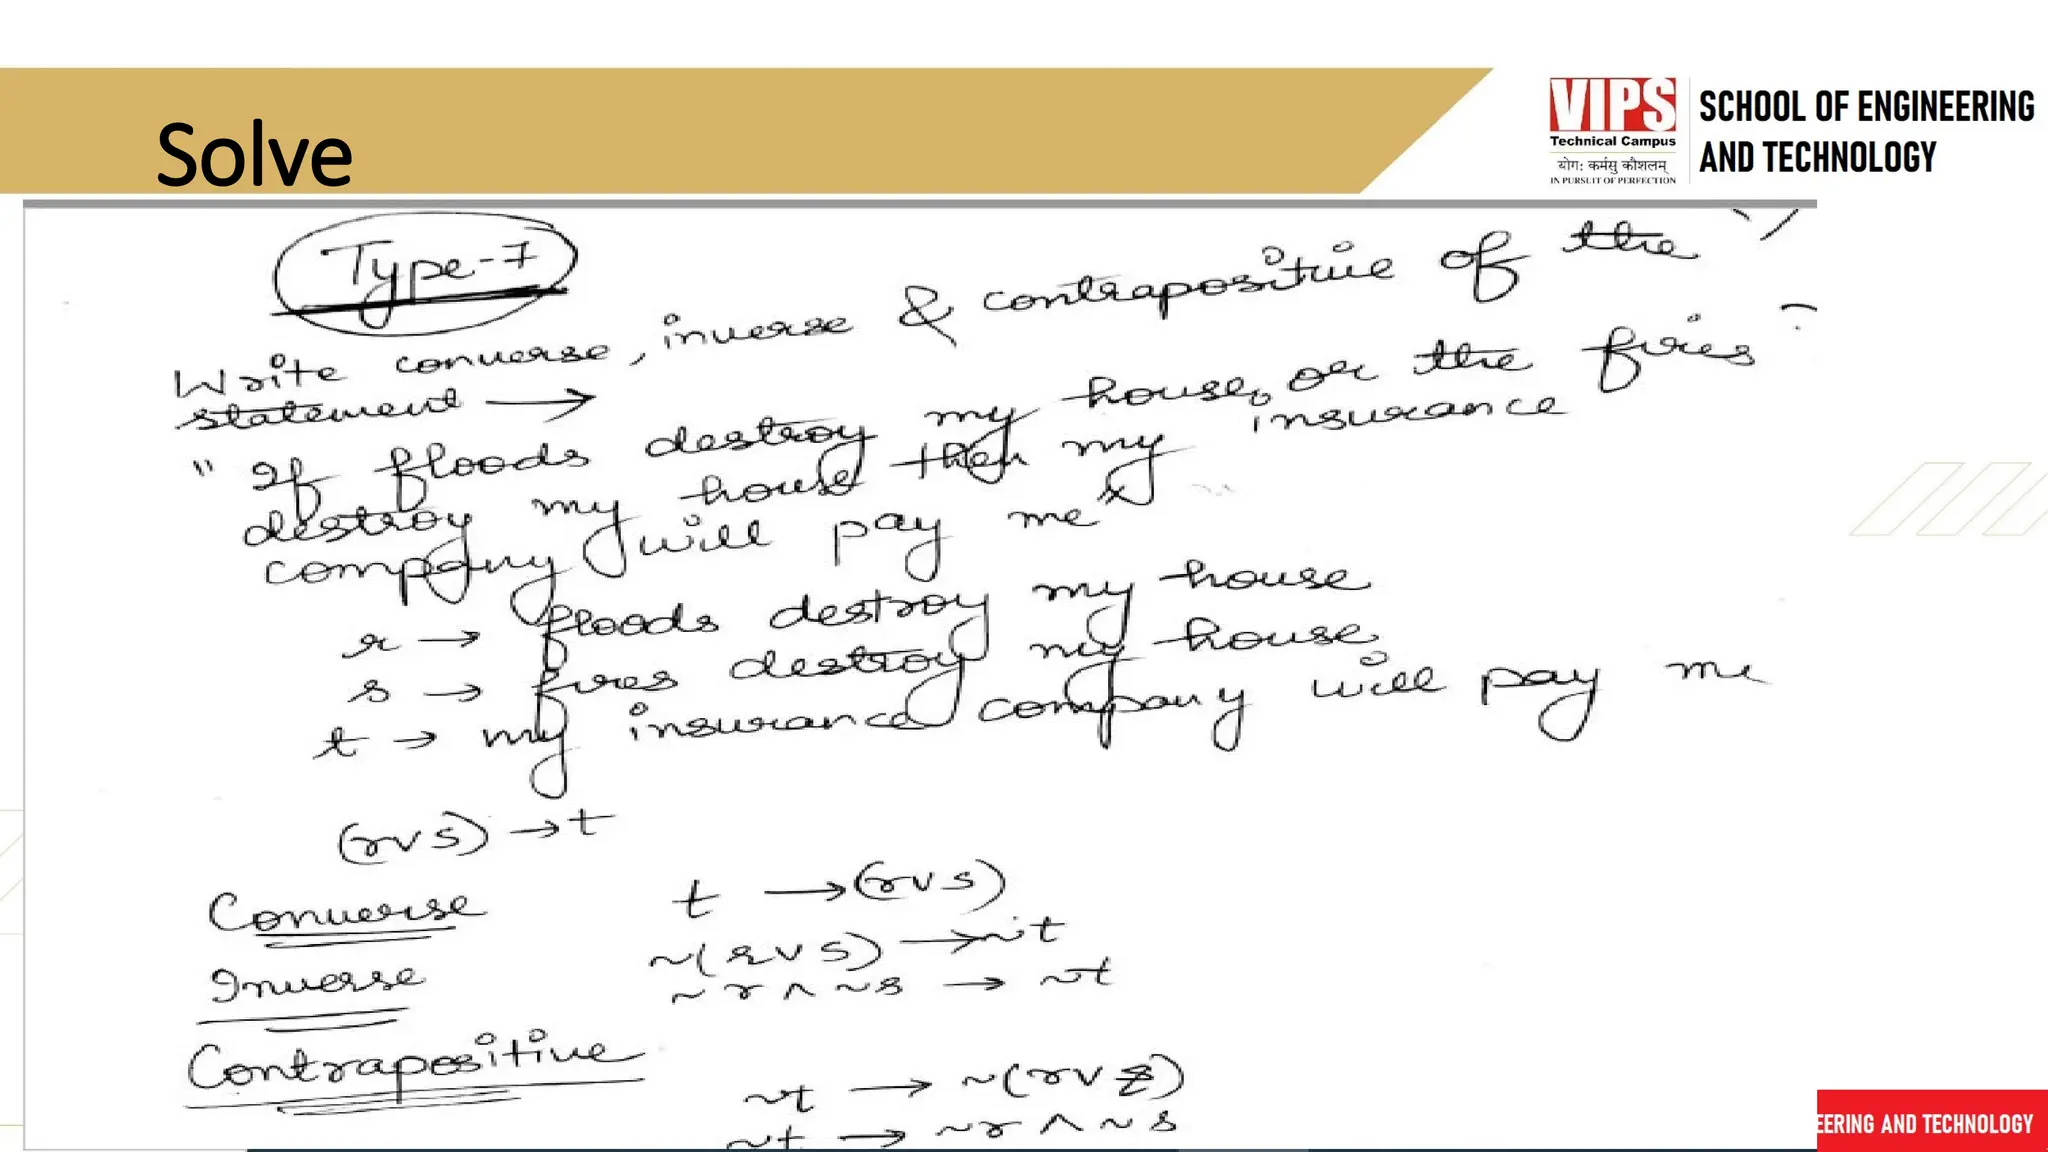 Solve
VIPS
Technical Campus
योगः कर्मसु कौशलम्
IN PURSUIT OF PERFECTION
SCHOOL OF ENGINEERING
AND TECHNOLOGY
Type-7
Write converse, inverse & contrapositive of the
statement →
"If floods destroy my house, or the fires
destroy my house then my insurance
company will pay me"
r → floods destroy my house
s → fires destroy my house
t → my insurance company will pay me
(r∨s) → t
Converse t → (r∨s)
Inverse ~(r∨s) → ~t
~r ∧ ~s → ~t
Contrapositive ~t → ~(r∨s)
~t → ~r ∧ ~s
EERING AND TECHNOLOGY